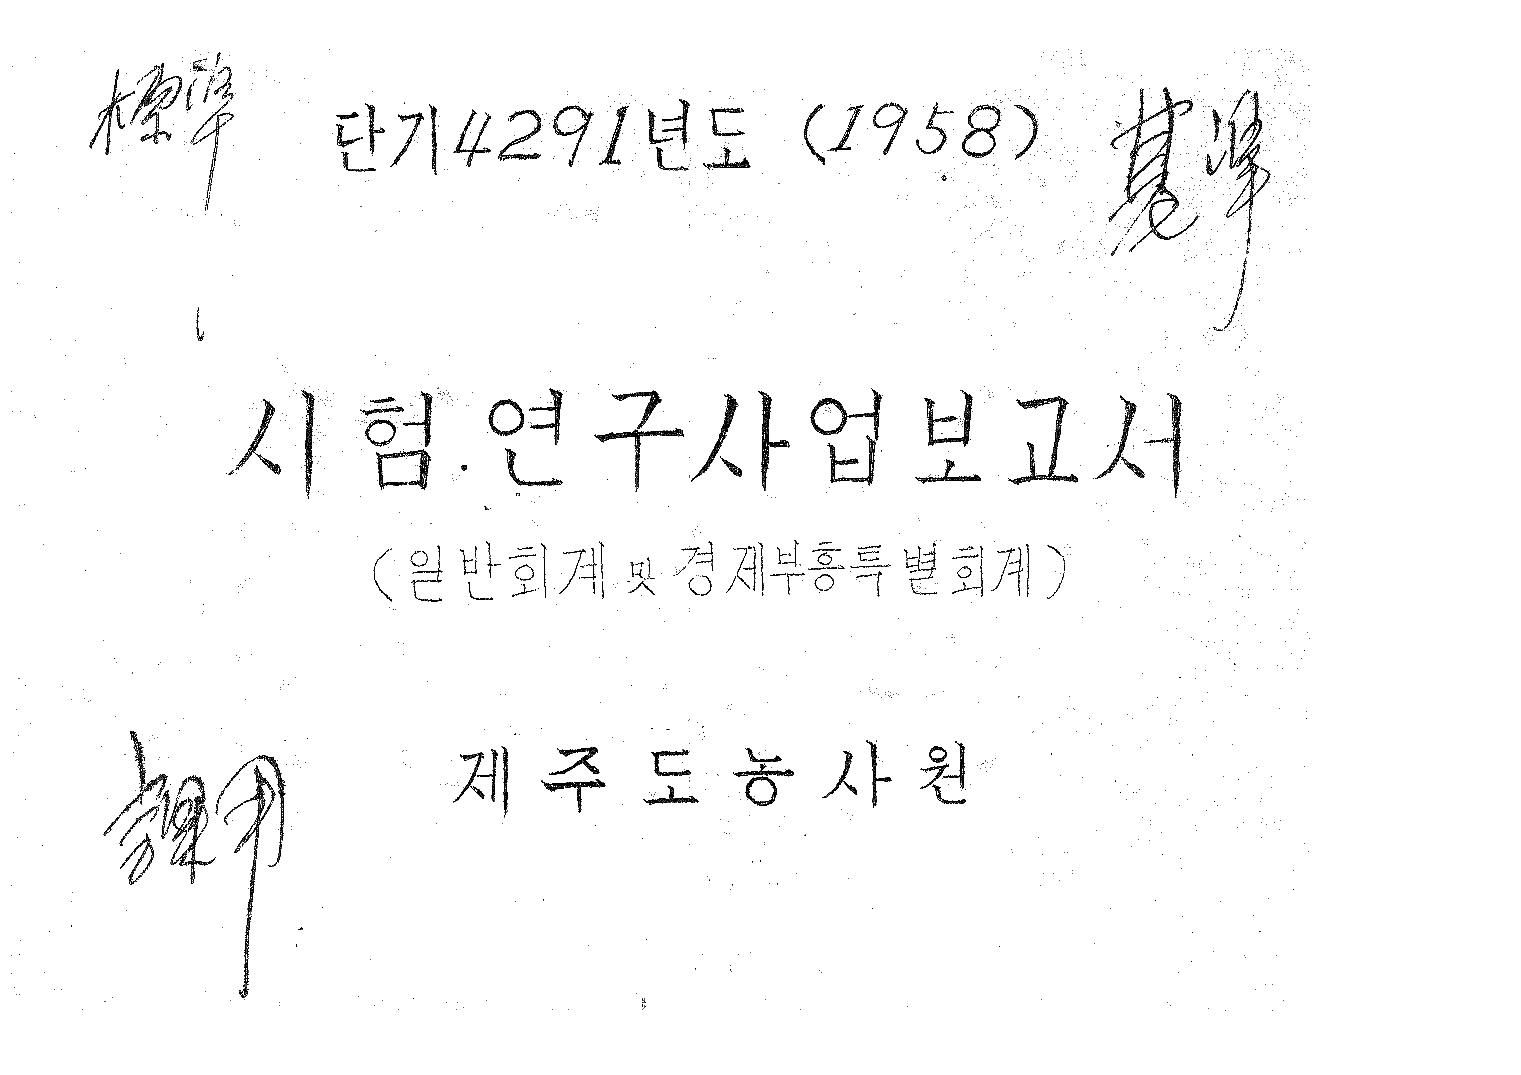 標準
단기4291년도 (1958)
시험.연구사업보고서
(일반회계 및 경제부흥특별회계)
제주도농사원